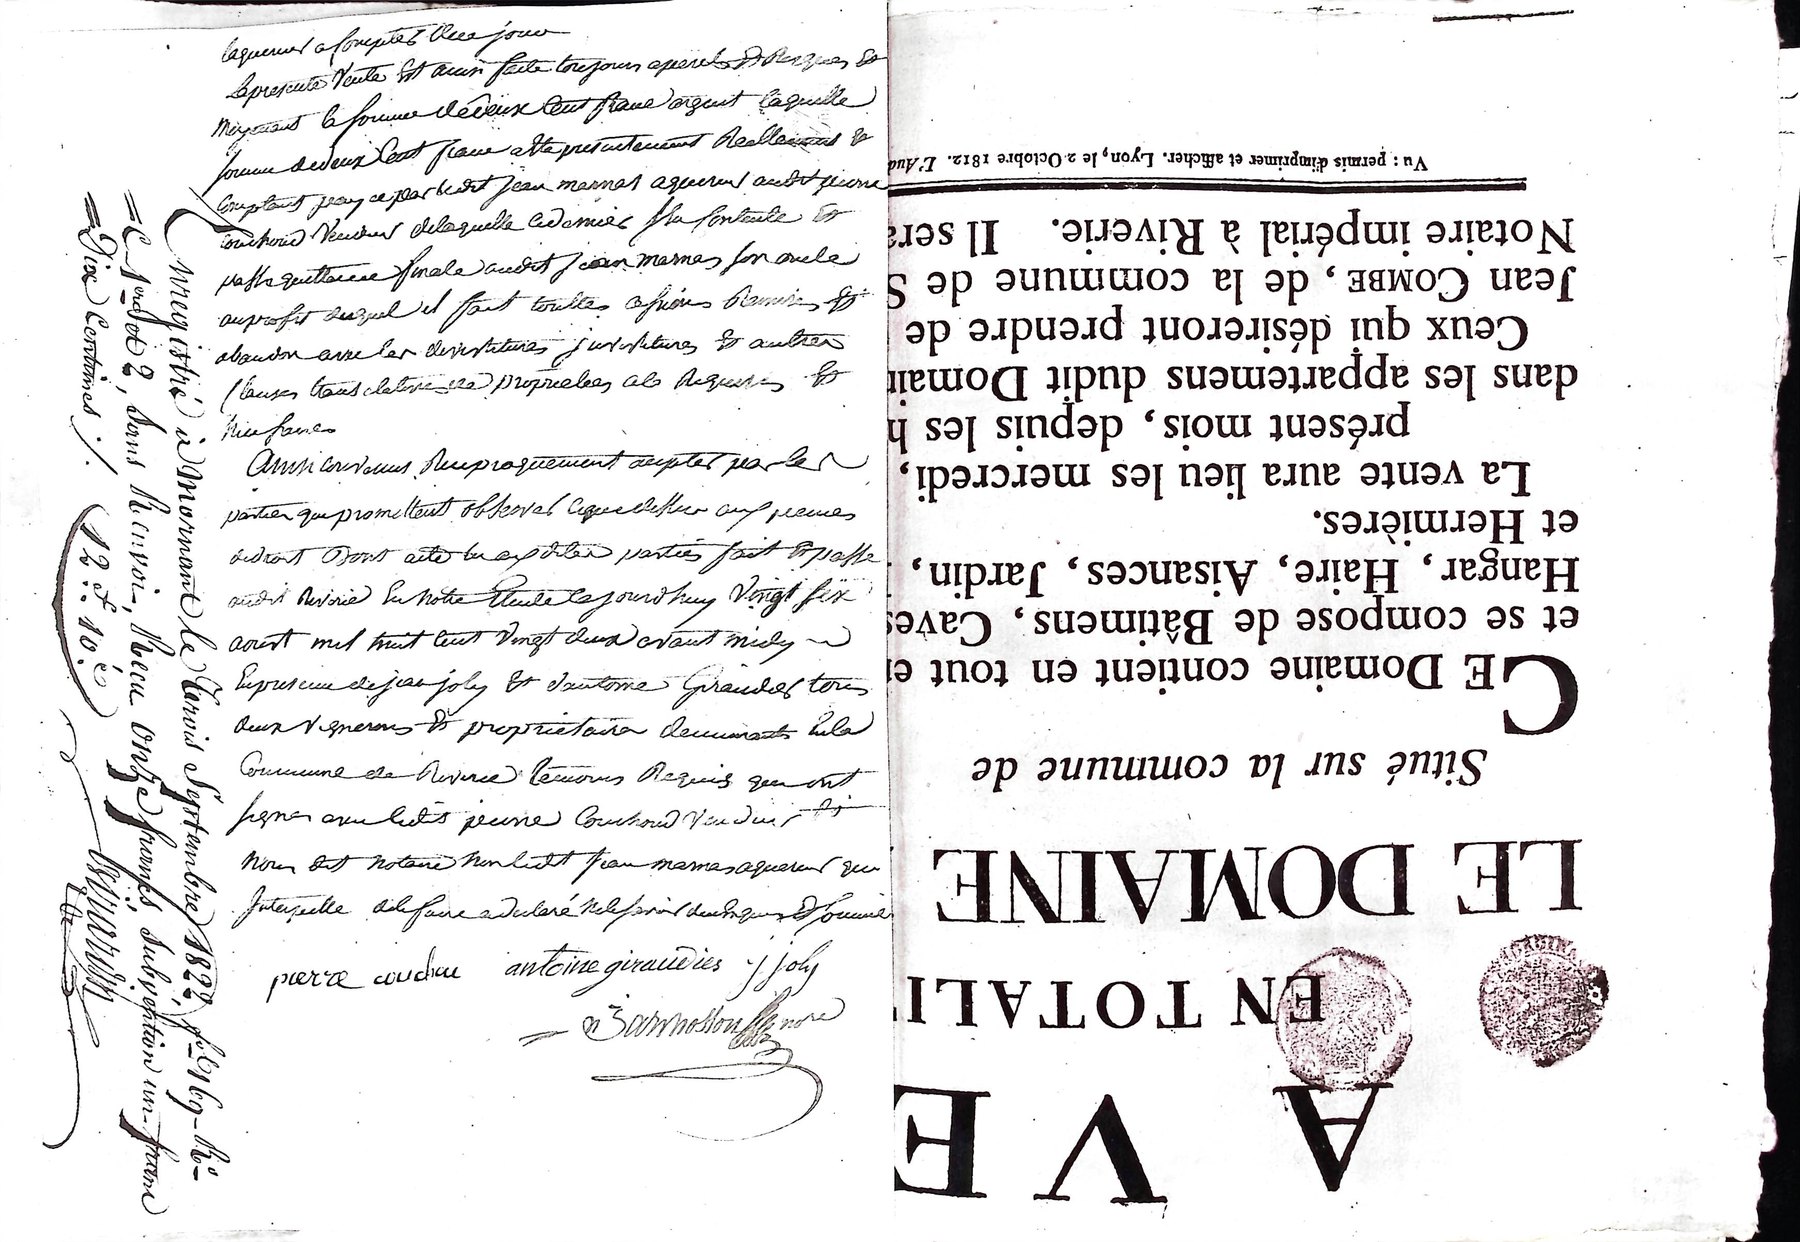 laquereur a Compter de ce jour
la presente Vente Est aussi faite toujours a perils Et Risques Et
moyenant la somme de deux Cent franc argent laquelle
somme de deux Cent franc a Ete presentement Reellement Et
Comptant payee par ledit jean marnas aquereur audit pierre
Couchoud Vendeur de laquelle ce dernier Sen Contente Et
passe quittance finale audit jean marnas son oncle
au profit duquel il fait touttes cessions Remises Et
abandon avec les devestitures investitures Et autres
Clauses translatives de proprietees a ce Requises Et
Necessaires
Ainsi convenus Reciproquement acepter par les
parties qui promettent observer ce que dessus aux peines
de droit Dont acte aux dites parties fait Et passe
audit Riverie En notre Etude ce jourdhuy Vingt six
aoust mil huit Cent Vingt deux avant midy
En presence de jean joly Et dantoine Giraudier tous
deux vignerons Et proprietaires demeurants En la
Commune de Riverie temoins Requis qui ont
signes avec ledit pierre Couchoud Vendeur Et
Nous dit notaire Non ledit jean marnas aquereur qui
Interpellé de le faire a declaré Ne le savoir de ce Requis Et sommé
pierre couchou antoine giraudier j joly
nore
Enregistré à Mornant le trois Septembre 1822, fo 169 Ro
C 1 et 2, Sans Renvoi, Reçu onze francs Subvention un franc
Dix Centimes ./. 12 f. 10 c
A VE
EN TOTALI
LE DOMAINE
Situé sur la commune de
CE Domaine contient en tout e
et se compose de Bâtimens, Caves
Hangar, Haire, Aisances, Jardin,
et Hermières.
La vente aura lieu les mercredi,
présent mois, depuis les h
dans les appartemens dudit Domain
Ceux qui désireront prendre de
Jean COMBE, de la commune de S
Notaire impérial à Riverie. Il sera
Vu : permis d'imprimer et afficher. Lyon, le 2 Octobre 1812. L'Aud